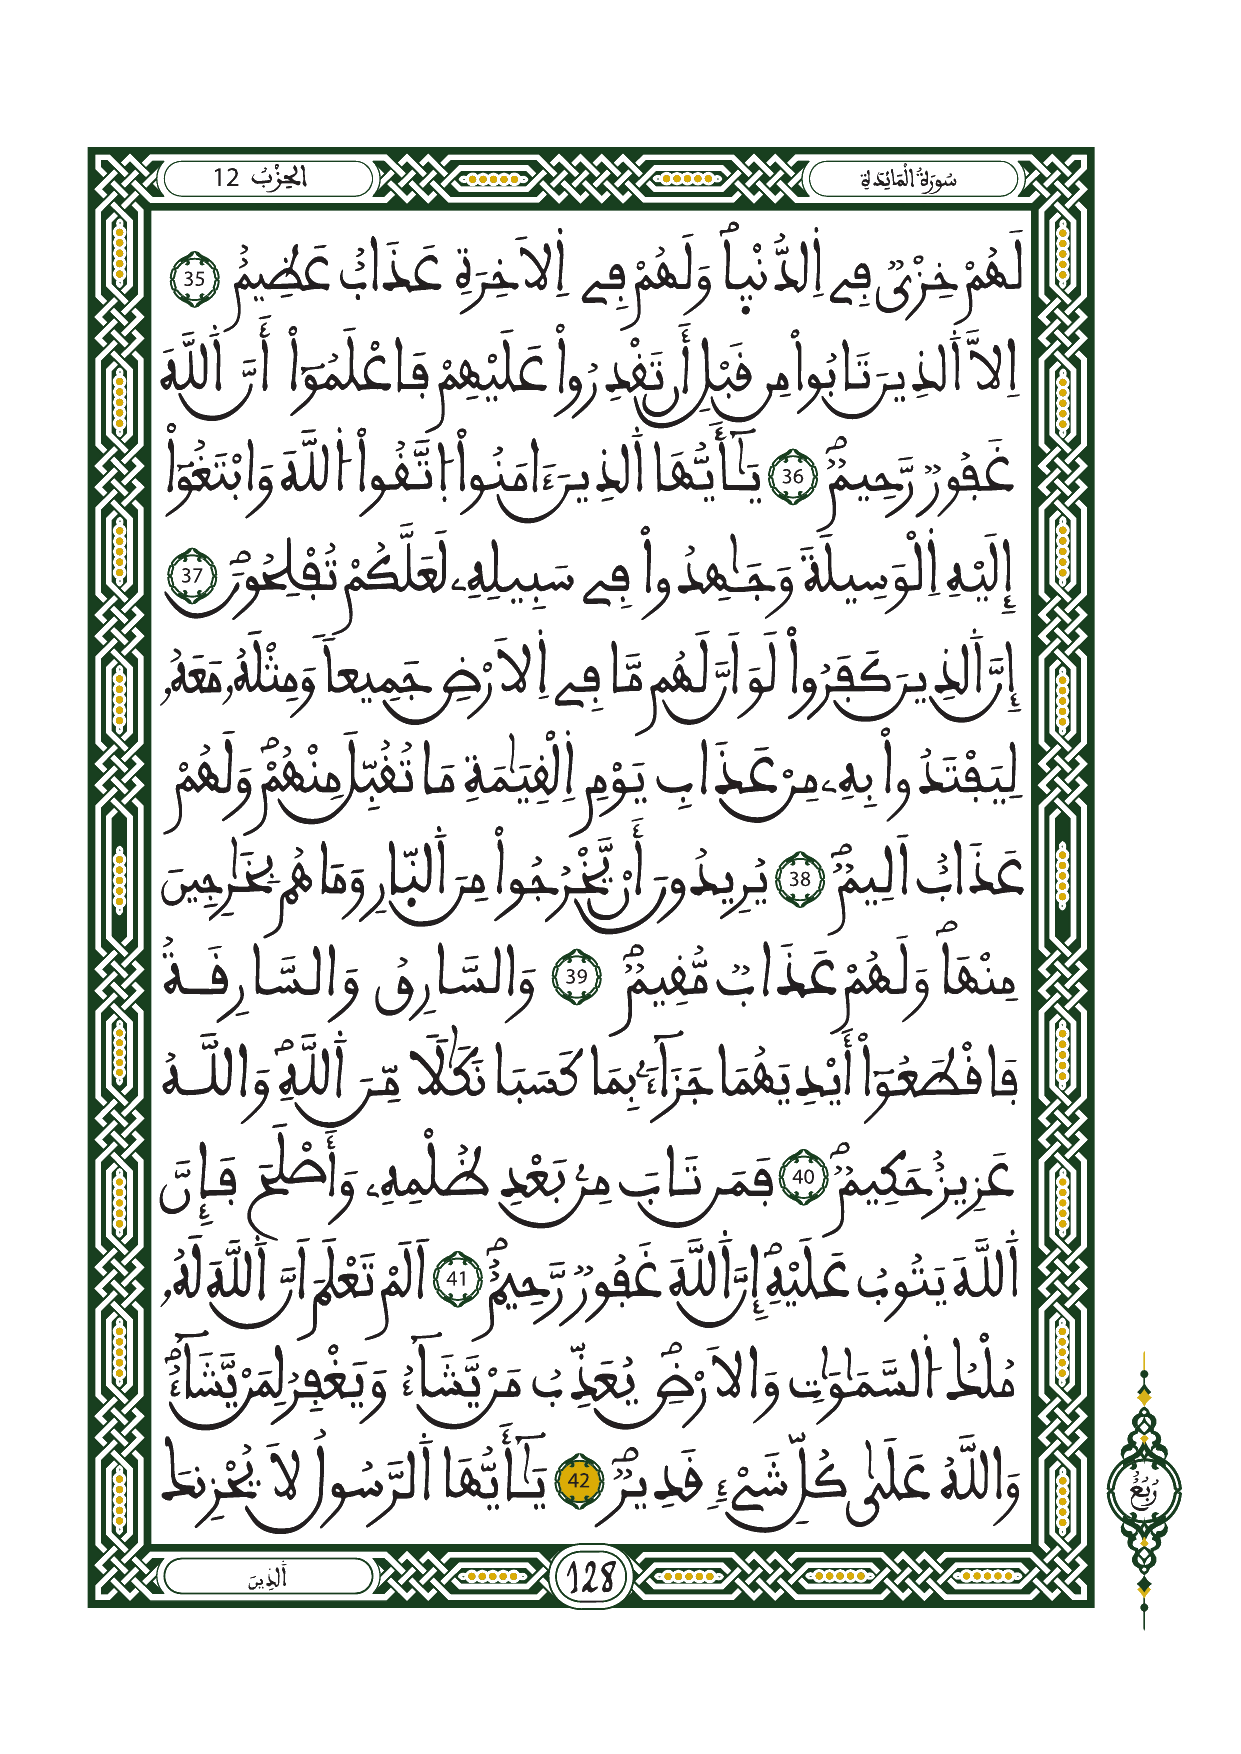 سُورَةُ الْمَائِدَةِ
الحِزْبُ 12
لَهُمْ خِزْيٌ فِي اِلدُّنْيَا وَلَهُمْ فِي اِلَاخِرَةِ عَذَابٌ عَظِيمٌ 35
اِلَّا اَلذِينَ تَابُواْ مِن قَبْلِ أَن تَقْدِرُواْ عَلَيْهِمْ فَاعْلَمُوٓاْ أَنَّ اَللَّهَ
غَفُورٌ رَّحِيمٌ 36 يَٰٓأَيُّهَا اَلذِينَ ءَامَنُواْ اُتَّقُواْ اُللَّهَ وَابْتَغُوٓاْ
إِلَيْهِ اِلْوَسِيلَةَ وَجَٰهِدُواْ فِي سَبِيلِهِۦ لَعَلَّكُمْ تُفْلِحُونَ 37
إِنَّ اَلذِينَ كَفَرُواْ لَوَ اَنَّ لَهُم مَّا فِي اِلَارْضِ جَمِيعاً وَمِثْلَهُۥ مَعَهُۥ
لِيَفْتَدُواْ بِهِۦ مِنْ عَذَابِ يَوْمِ اِلْقِيَٰمَةِ مَا تُقُبِّلَ مِنْهُمْ وَلَهُمْ
عَذَابٌ اَلِيمٌ 38 يُرِيدُونَ أَنْ يَّخْرُجُواْ مِنَ اَلنّ۪ارِ وَمَا هُم بِخَٰرِجِينَ
مِنْهَا وَلَهُمْ عَذَابٌ مُّقِيمٌ 39 وَالسَّارِقُ وَالسَّارِقَةُ
فَاقْطَعُوٓاْ أَيْدِيَهُمَا جَزَآءَۢ بِمَا كَسَبَا نَكَٰلًا مِّنَ اَللَّهِ وَاللَّهُ
عَزِيزٌ حَكِيمٌ 40 فَمَن تَابَ مِنۢ بَعْدِ ظُلْمِهِۦ وَأَصْلَحَ فَإِنَّ
اَللَّهَ يَتُوبُ عَلَيْهِ إِنَّ اَللَّهَ غَفُورٌ رَّحِيمٌ 41 اَلَمْ تَعْلَمَ اَنَّ اَللَّهَ لَهُۥ
مُلْكُ اُلسَّمَٰوَٰتِ وَالَارْضِ يُعَذِّبُ مَنْ يَّشَآءُ وَيَغْفِرُ لِمَنْ يَّشَآءُ
وَاللَّهُ عَلَىٰ كُلِّ شَيْءٖ قَدِيرٌ 42 يَٰٓأَيُّهَا اَلرَّسُولُ لَا يُحْزِنكَ
رُبُعُ
اَلذِينَ
128